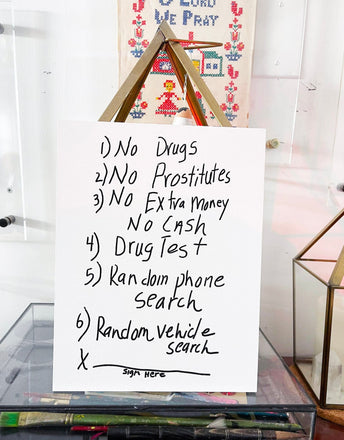 O LORD
WE PRAY
1) No Drugs
2) No Prostitutes
3) No Extra Money
No Cash
4) Drug Test
5) Random phone
search
6) Random vehicle
search
X
Sign Here